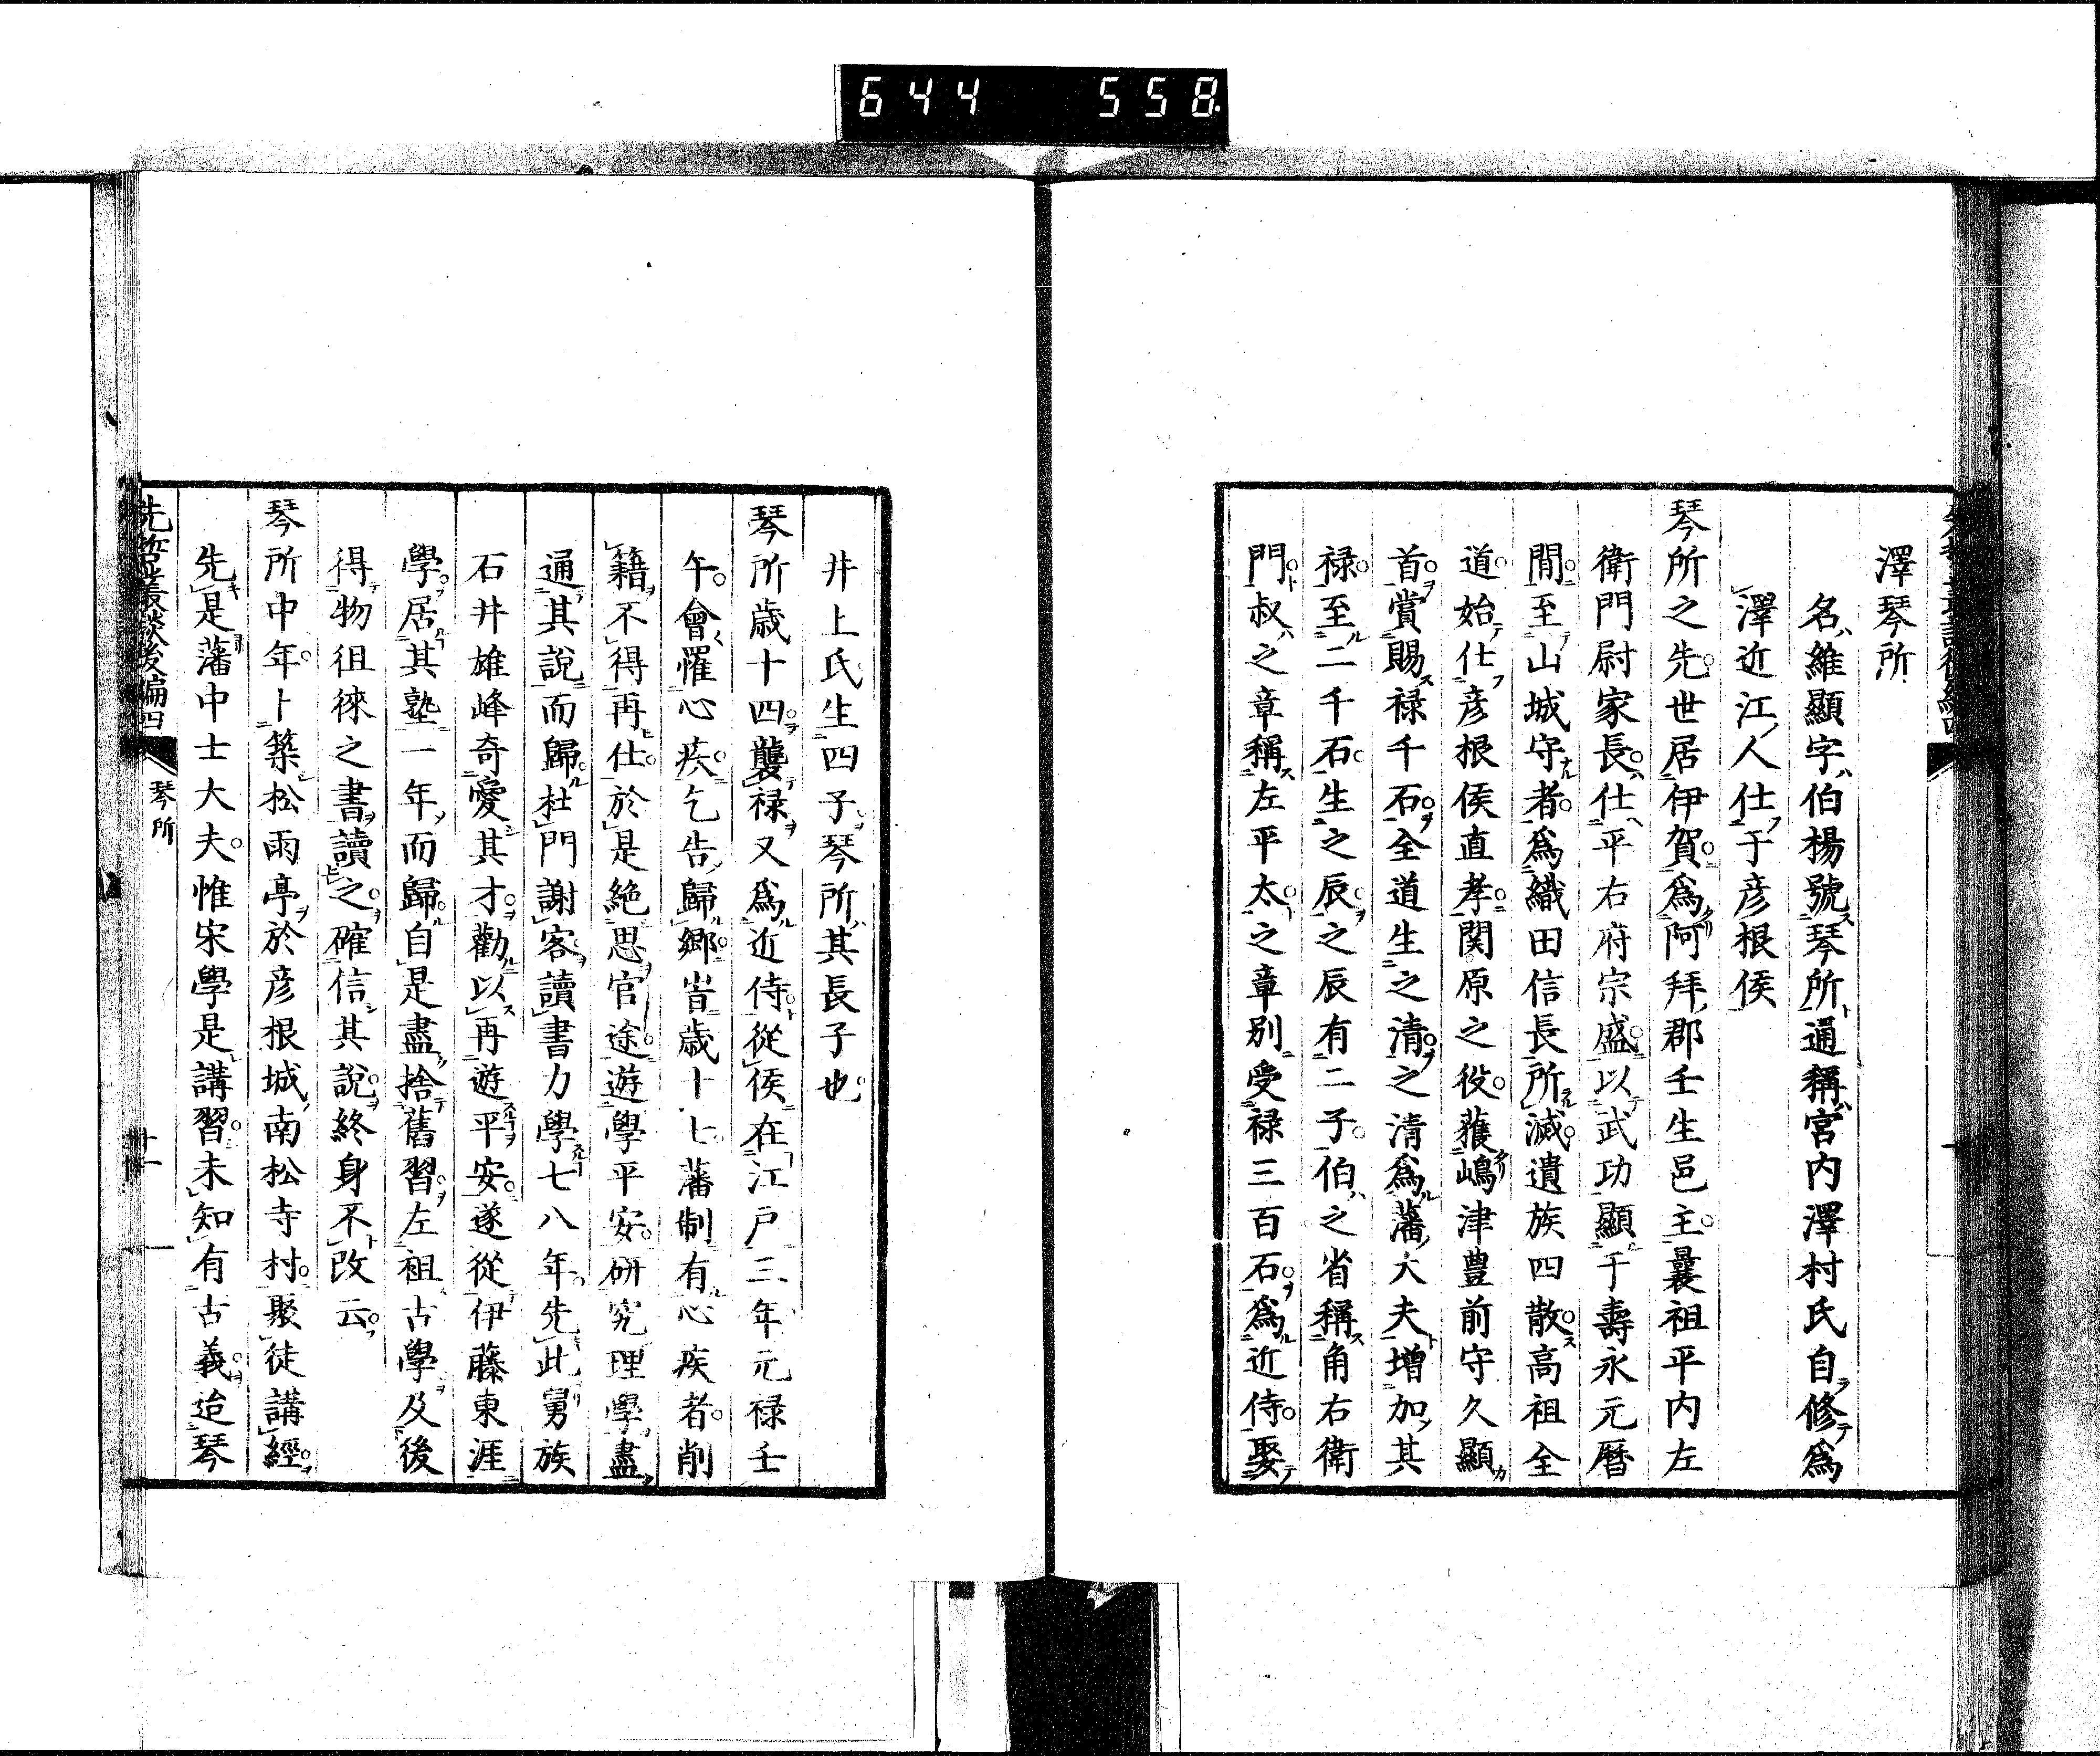 644 558
澤琴所
名維顯字伯楊號琴所通稱宮内澤村氏自修爲
澤近江人仕于彦根侯
琴所之先世居伊賀爲阿拜郡壬生邑主曩祖平内左
衛門尉家長仕平右府宗盛以武功顯于壽永元暦
間至山城守者爲織田信長所滅遺族四散高祖全
道始仕彦根侯直孝関原之役獲嶋津豊前守久顯
首賞賜禄千石全道生之清之清爲藩大夫增加其
禄至二千石生之辰之辰有二子伯之省稱角右衛
門叔之章稱左平太之章別受禄三百石爲近侍娶
井上氏生四子琴所其長子也
琴所歳十四襲禄又爲近侍從侯在江戸三年元禄壬
午會罹心疾乞告歸郷時歳十七藩制有心疾者削
籍不得再仕於是絶思官途遊學平安研究理學盡
通其説而歸杜門謝客讀書力學七八年先此舅族
石井雄峰奇愛其才勸以再遊平安遂從伊藤東涯
學居其塾一年而歸自是盡捨舊習左祖古學及後
得物徂徠之書讀之確信其説終身不改云
琴所中年卜築松雨亭於彦根城南松寺村聚徒講經
先是藩中士大夫惟宋學是講習未知有古義迨琴
先哲叢談後編四
琴所
十一